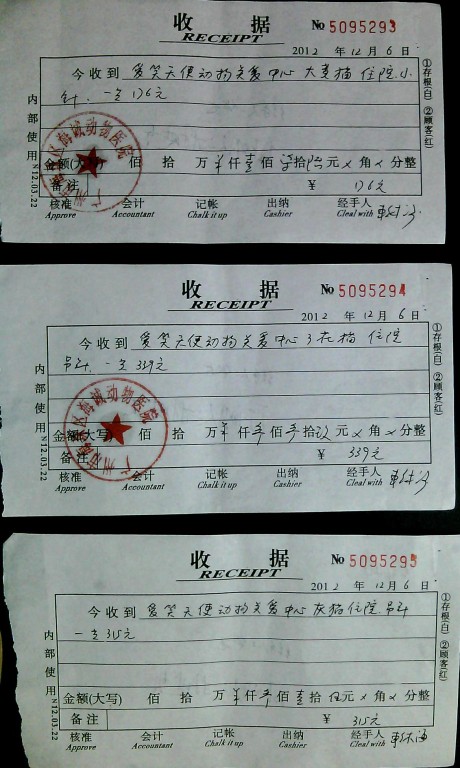 收 据 No 5095293
RECEIPT
2012 年 12 月 6 日
今收到 爱笑天使动物关爱中心 大麦猫 住院.小
针. 一支 176元
金额(大写) 佰 拾 万 仟 壹 佰 拾 陆 元 × 角 × 分整
备注 ¥ 176元
核准 会计 记帐 出纳 经手人
Approve Accountant Chalk it up Cashier Cleal with
①存根(白) ②顾客(红)
内部使用 N12.03.22
海诚动物医院
收 据 No 5095294
RECEIPT
2012 年 12 月 6 日
今收到 爱笑天使动物关爱中心 三花猫 住院
吊针. 一支 339元
金额(大写) 佰 拾 万 仟 佰 拾 玖 元 × 角 × 分整
备注 ¥ 339元
核准 会计 记帐 出纳 经手人
Approve Accountant Chalk it up Cashier Cleal with
①存根(白) ②顾客(红)
内部使用 N12.03.22
海诚动物医院
收 据 No 5095295
RECEIPT
2012 年 12 月 6 日
今收到 爱笑天使动物关爱中心 灰猫 住院.吊针
一支 315元
金额(大写) 佰 拾 万 仟 佰 壹 拾 伍 元 × 角 × 分整
备注 ¥ 315元
核准 会计 记帐 出纳 经手人
Approve Accountant Chalk it up Cashier Cleal with
①存根(白) ②顾客(红)
内部使用 N12.03.22